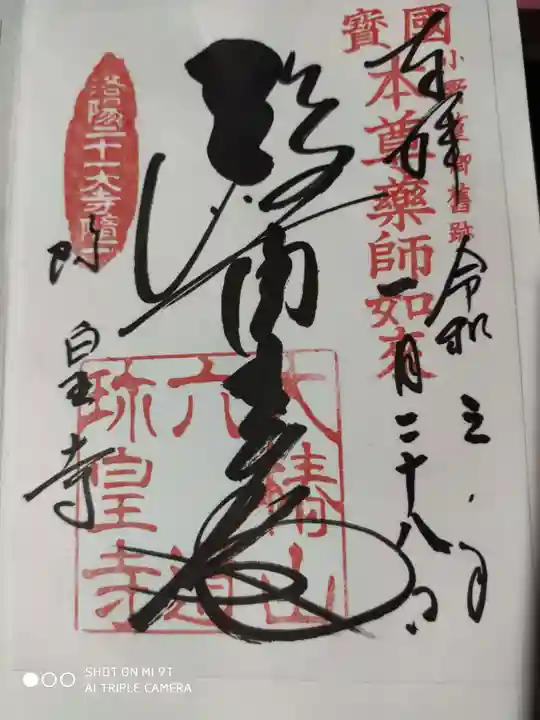 國寶
小野篁卿舊跡
本尊藥師如來
奉拝
令和三年
一月二十八日
大椿山
六道
珎皇寺
洛陽二十一大寺隨一
珎皇寺
SHOT ON MI 9T
AI TRIPLE CAMERA